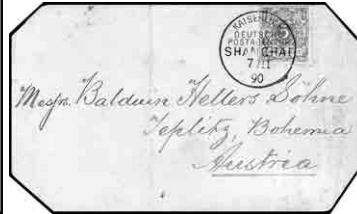 KAISERLICH
DEUTSCHE
POSTAGENTUR
SHANGHAI
7/11
90
Messrs. Balduin Hellers Söhne
Teplitz, Bohemia
Austria